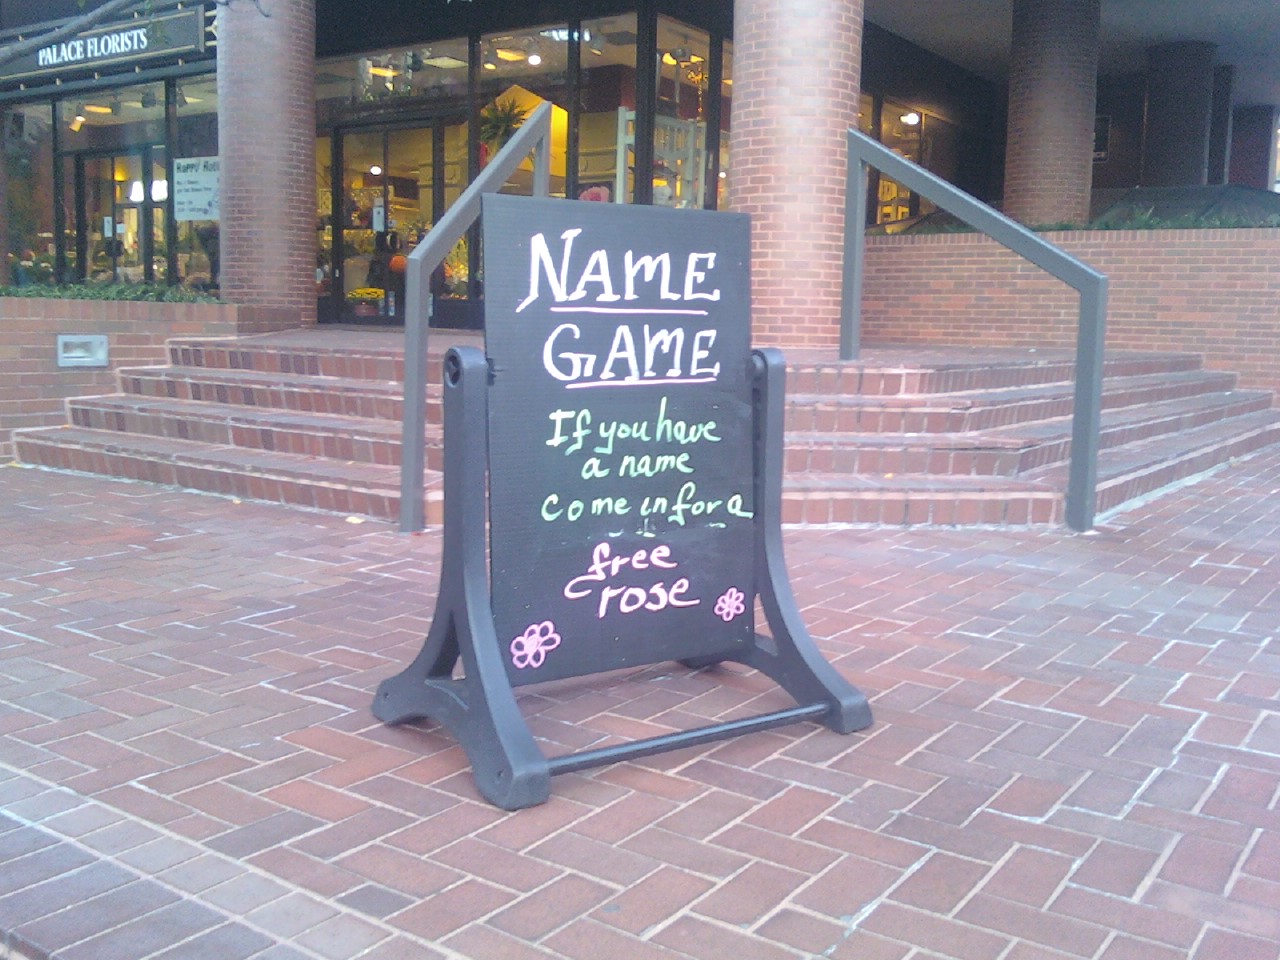 PALACE FLORISTS
NAME
GAME
If you have
a name
come in for a
free
rose